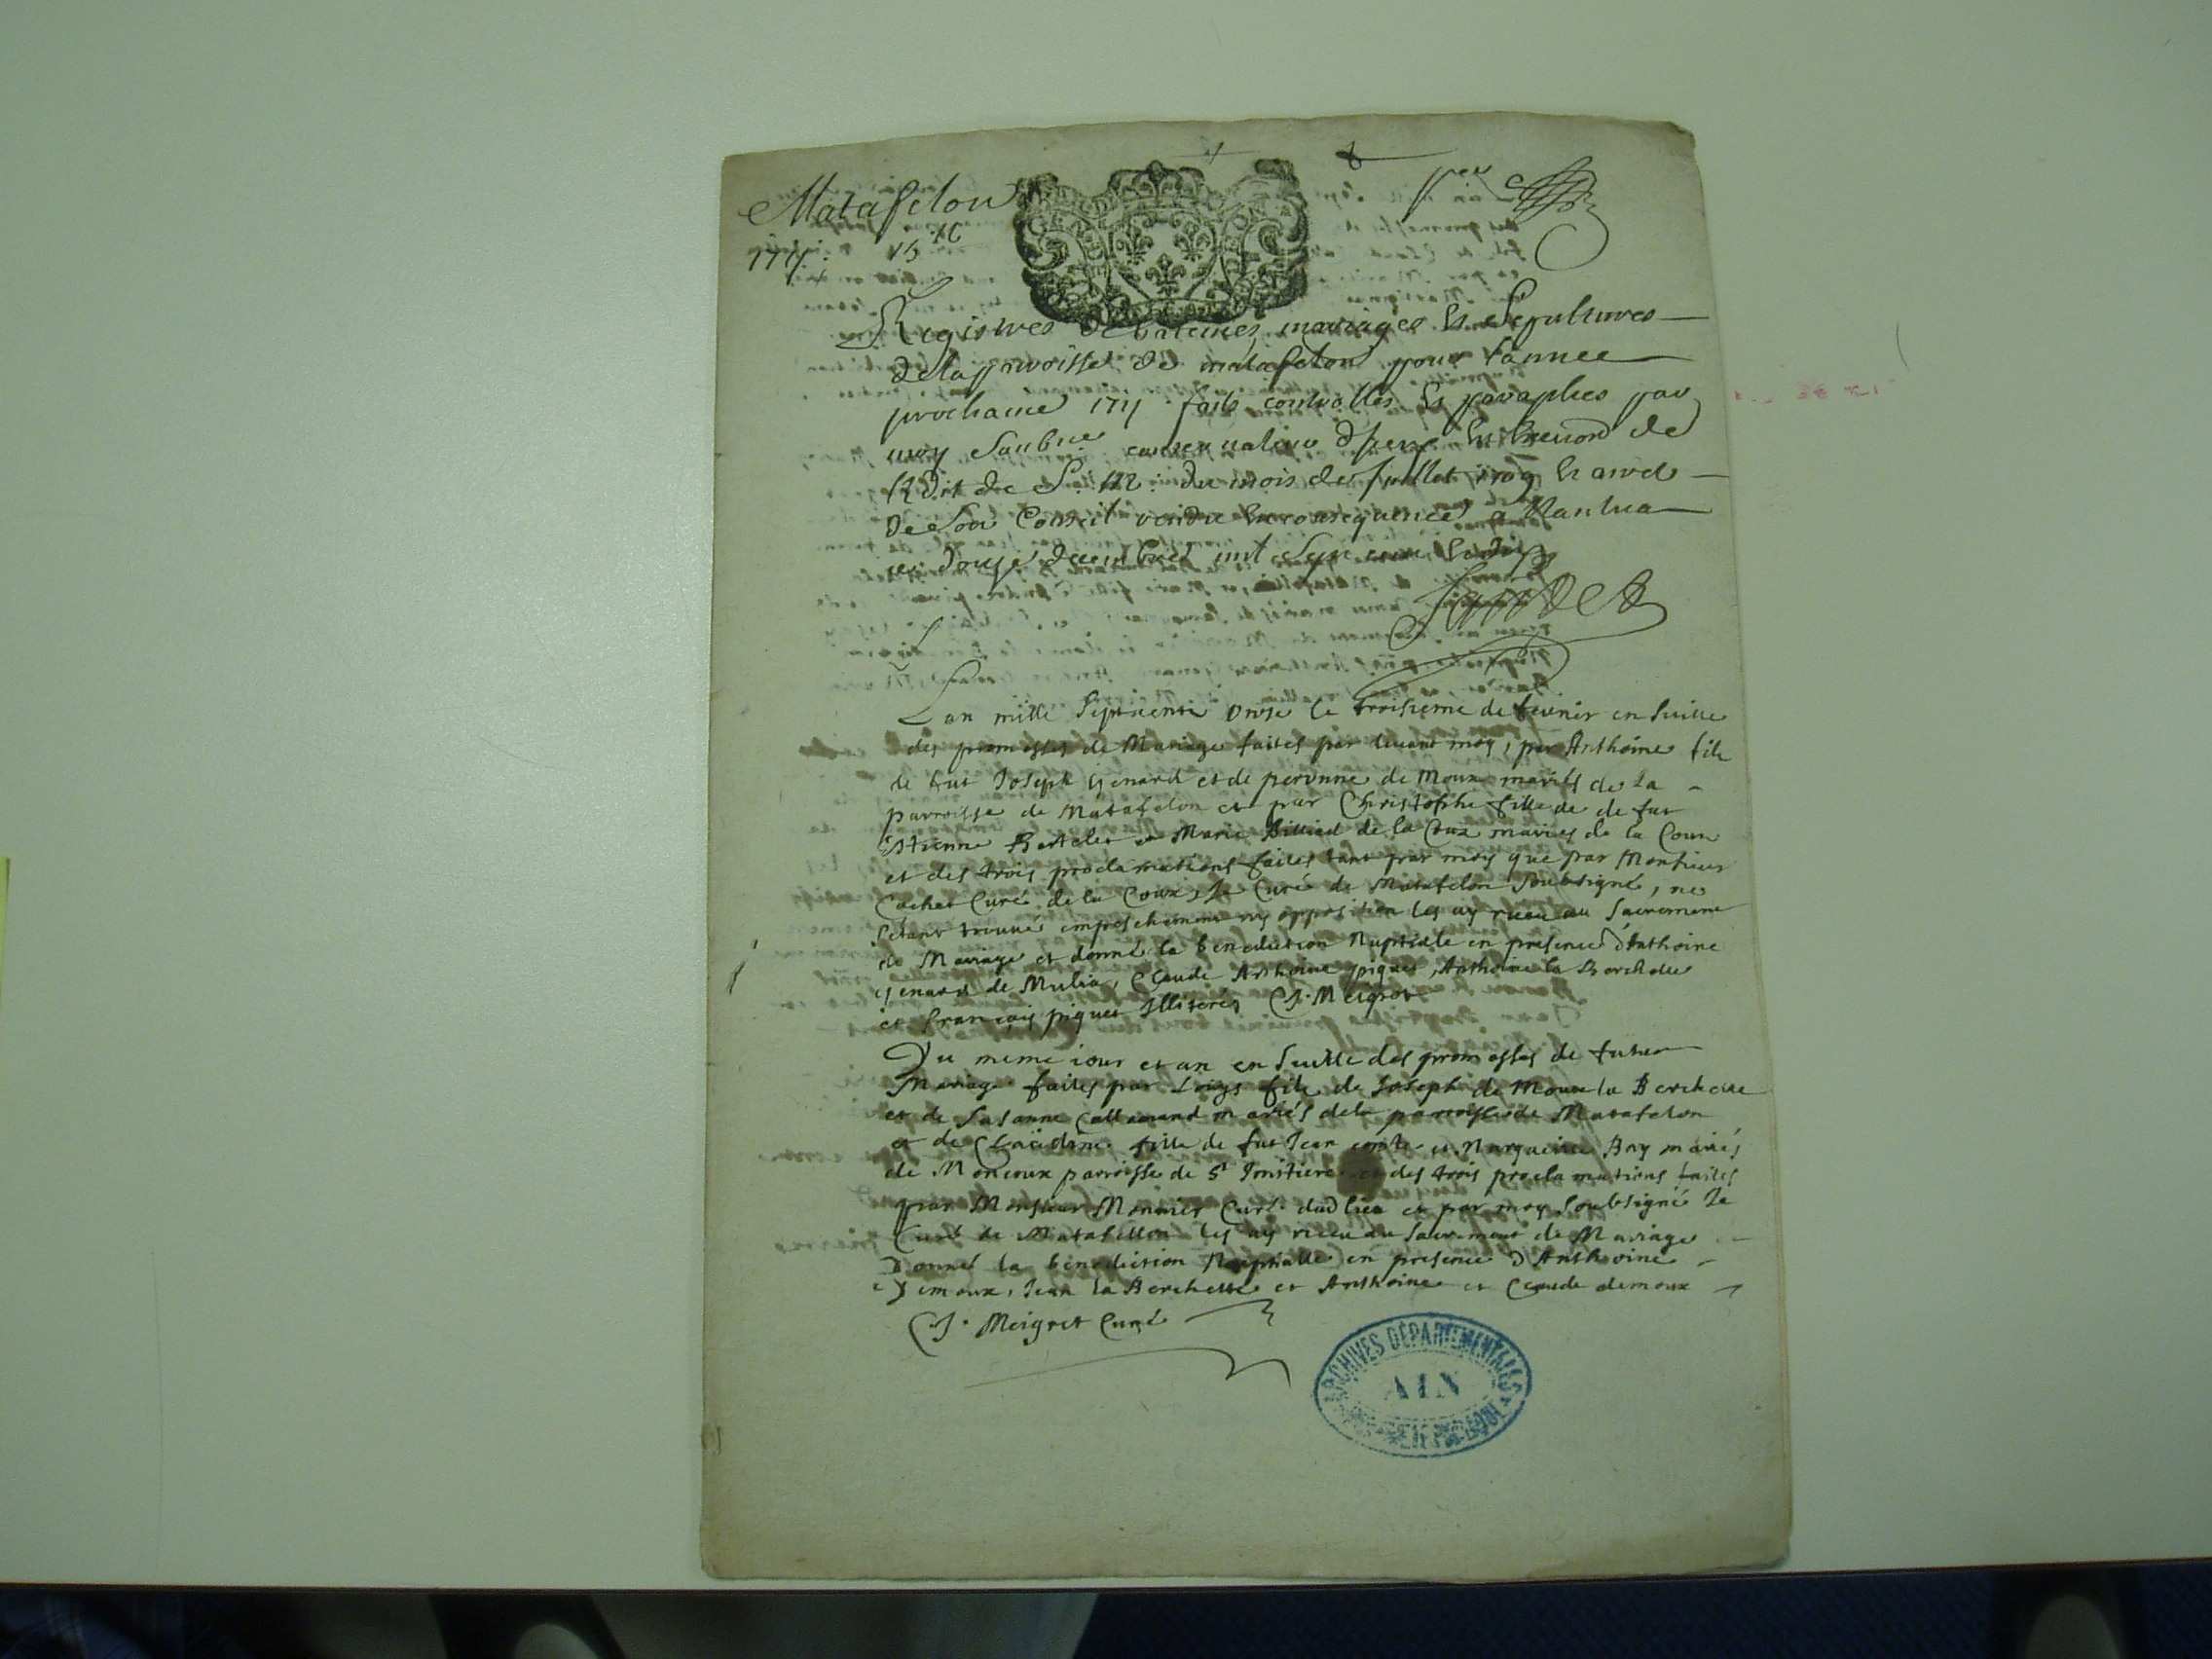 Matafelon
1711 :
Registres de batêmes mariages et Sepultures
de la parroisse de matafelon pour l'annee
prochaine 1711 faits controllés et paraphes par
moy Soubne en execution de
l'Edit de S. M. du mois de Juillet 1709 et arrel
de Son Conseil rendu en consequence a Nantua
ce douze decembre mil Sept cent et dix
Lan mille Septcents onze le troisieme de feurier en Suitte
des promesses de Mariage faites par deuant moy, par Anthoine fils
de fut Joseph Genard et de peronne de Moux mariés de la
parroisse de Matafelon et par Christophe fille de de fut
Estienne Bertelet et Marie Billiad de la Coux mariés de la Coux
et des trois proclamations faites tant par moy que par Monsieur
Cochet Curé de la Coux, Je Curé de Matafelon Soubsigné, ne
Setant trouué empeschement ny opposition les ay receu au Sacrement
de Mariage et donné la benediction Nuptiale en presence d'Anthoine
Genard de Mulia, Claude Anthoine piquet, Anthoine la Berchette
et françois piquet Illiterés C. J. Meigret
Du meme iour et an en Suitte des promesses de futur
Mariage faites par Loüys fils de Joseph de Moux la Berchette
et de Susanne Callemand mariés de la parroisse de Matafelon
et de Claudine fille de fut Jean conte et Marguerite Bay mariés
de Moncoux parroisse de St Imitiere et des trois proclamations faites
par Monsieur Monnier Curé dud lieu et par moy Soubsigné Je
Curé de Matafellon les ay receu au Sacrement de Mariage
Donné la benediction Nuptialle en presence d'Anthoine
Demoux, Jean la Berchette et Anthoine et Claude demoux
C. J. Meigret Curé
ARCHIVES DÉPARTEMENTALES
AIN